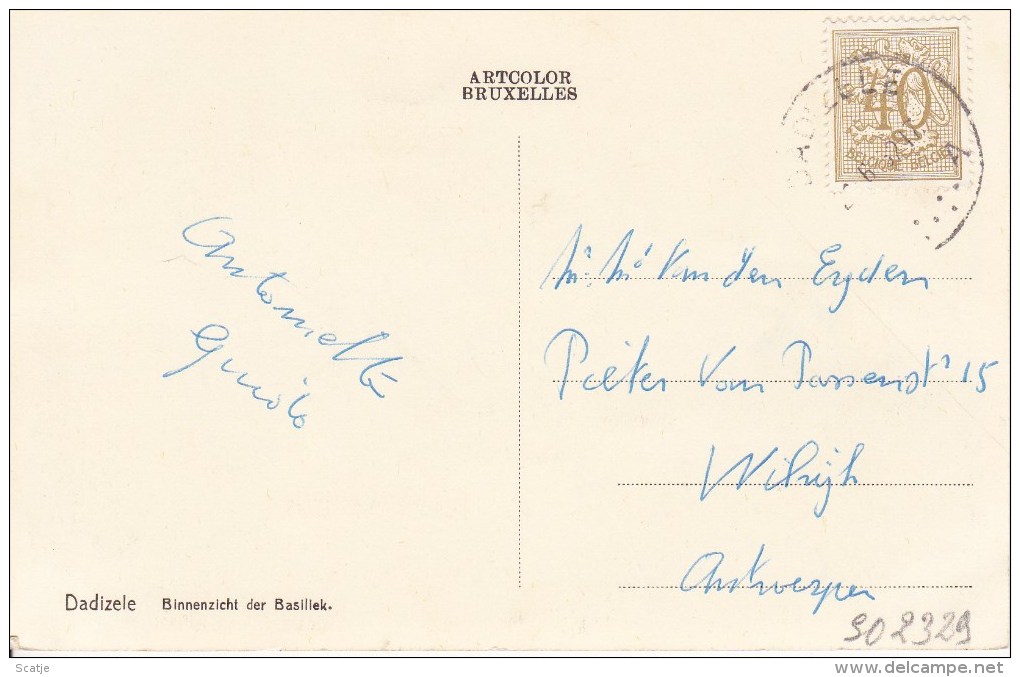 ARTCOLOR
BRUXELLES
40
BELGIQUE-BELGIE
Antoinette
Guido
Mr. Mw Van den Eyden
Pieter Van
15
Wilrijk
Antwerpen
Dadizele Binnenzicht der Basiliek.
902329
Scatje
www.delcampe.net